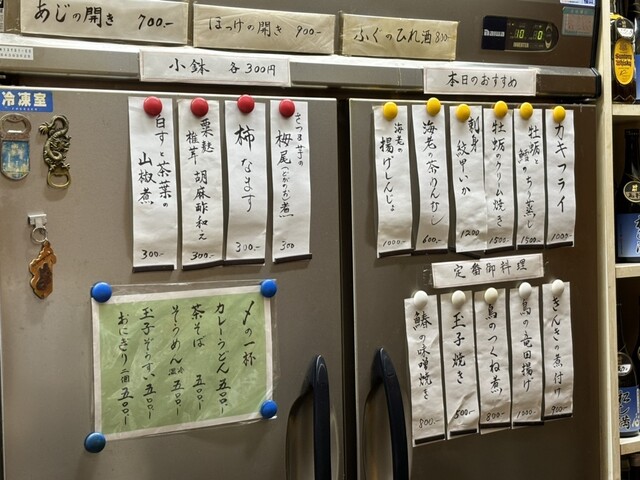 あじの開き 700.-
ほっけの開き 900.-
ふぐのひれ酒 800.-
小鉢 各300円
本日のおすすめ
冷凍室
さつま芋の栂尾(とがのお)煮 300
柿なます 300.-
粟麩 椎茸 胡麻酢和え 300.-
白すと茶葉の山椒煮 300.-
カキフライ 1000.-
牡蛎と鱈のちり蒸し 1500.-
牡蛎のクリーム焼き 1500.-
刺身 紋甲いか 1200
海老の茶わんむし 600.-
海老の揚げしんじょ 1000.-
定番御料理
きんきの煮付け 900.-
鳥の竜田揚げ 1000.-
鳥のつくね煮 800.-
玉子焼き 500.-
鰆の味噌焼き 800.-
〆の一杯
カレーうどん 五〇〇.-
茶そば 五〇〇.-
そうめん 温 冷 五〇〇.-
玉子ぞうすい 五〇〇.-
おにぎり 二個 五〇〇.-